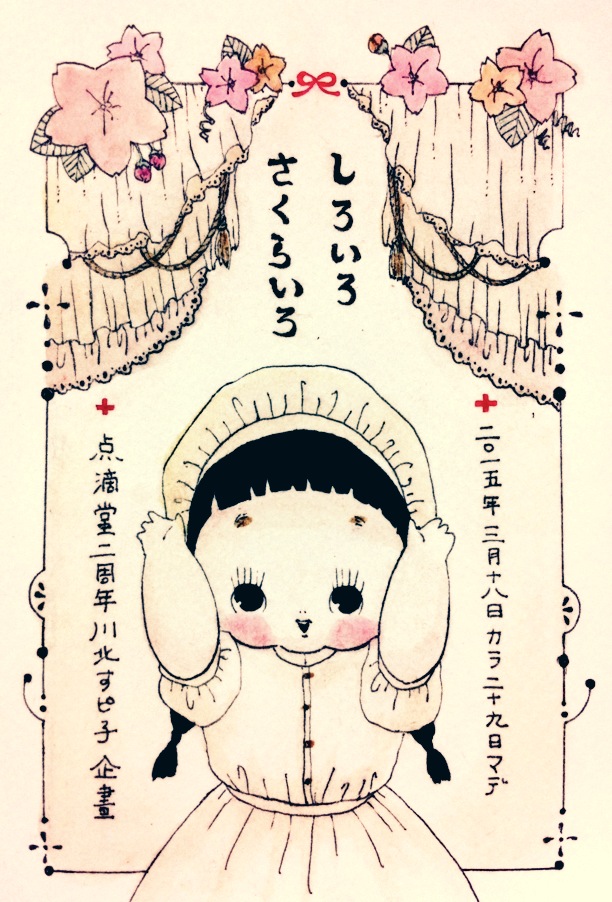 しろいろ
さくらいろ
二〇一五年三月十八日カラ二十九日マデ
点滴堂二周年川北すピ子企畫